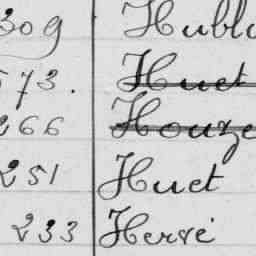 309 Hubl
573. Huet
266 Houze
251 Huet
233 Hervé